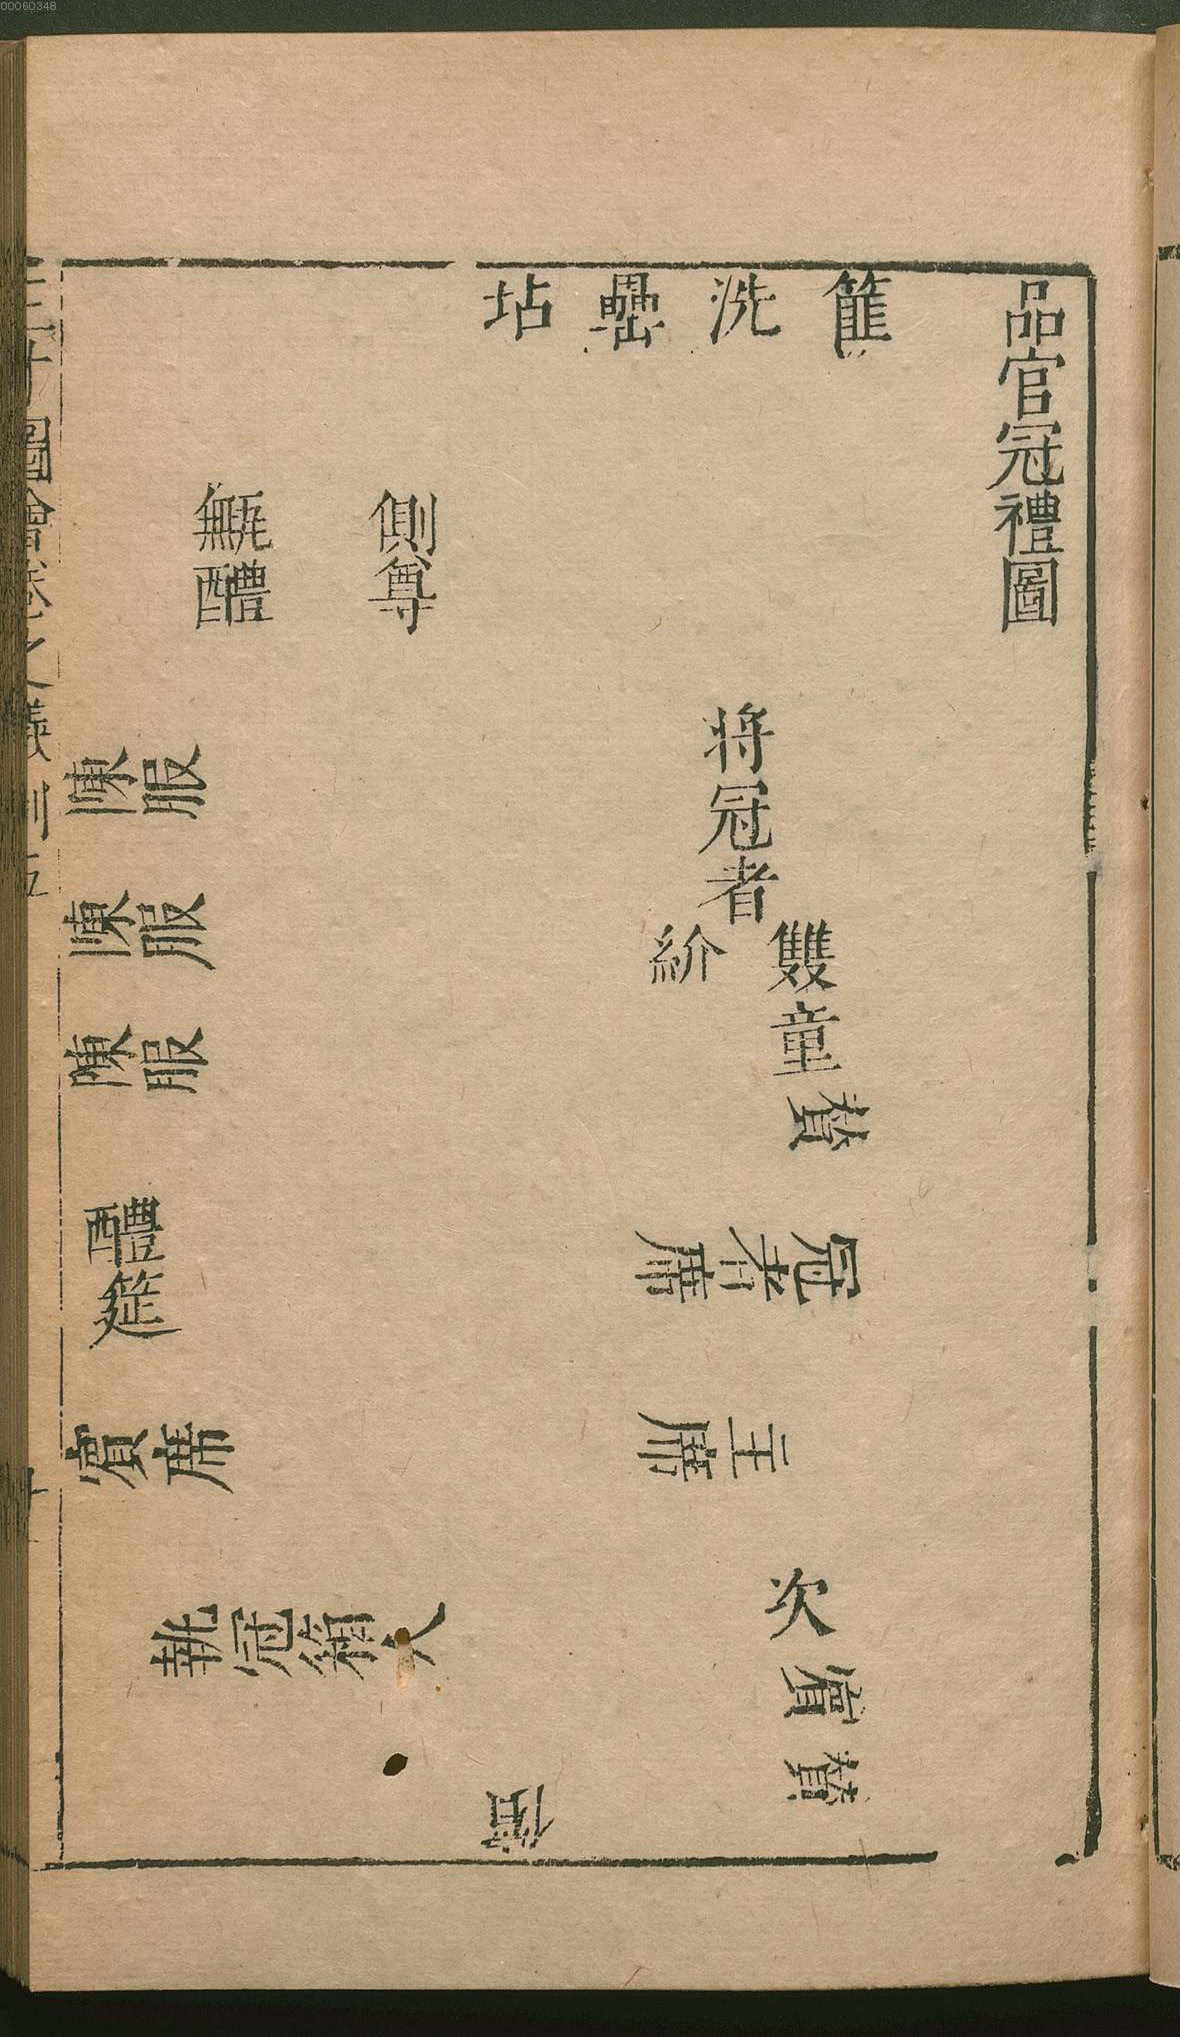 00060348
品官冠禮圖
篚
洗
罍
坫
側尊
甒醴
將冠者
雙童
紒
贊
冠者席
主席
次
賓
贊
陳服
陳服
陳服
醴筵
賓席
執冠箱人
三才圖會卷之儀制五